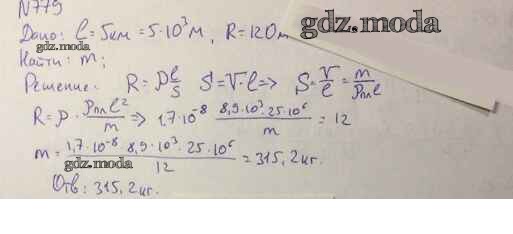 N779
Дано: l = 5км = 5·10³м, R = 12Ом
gdz.moda
gdz.moda
Найти: m;
Решение: R = ρ l/S S = V·l ⇒ S = V/l = m/ρпл l
R = ρ · ρпл l²/m ⇒ 1,7·10⁻⁸ 8,9·10³·25·10⁶/m = 12
m = 1,7·10⁻⁸ · 8,9·10³·25·10⁶/12 = 315,2кг.
gdz.moda
Отв: 315,2кг.